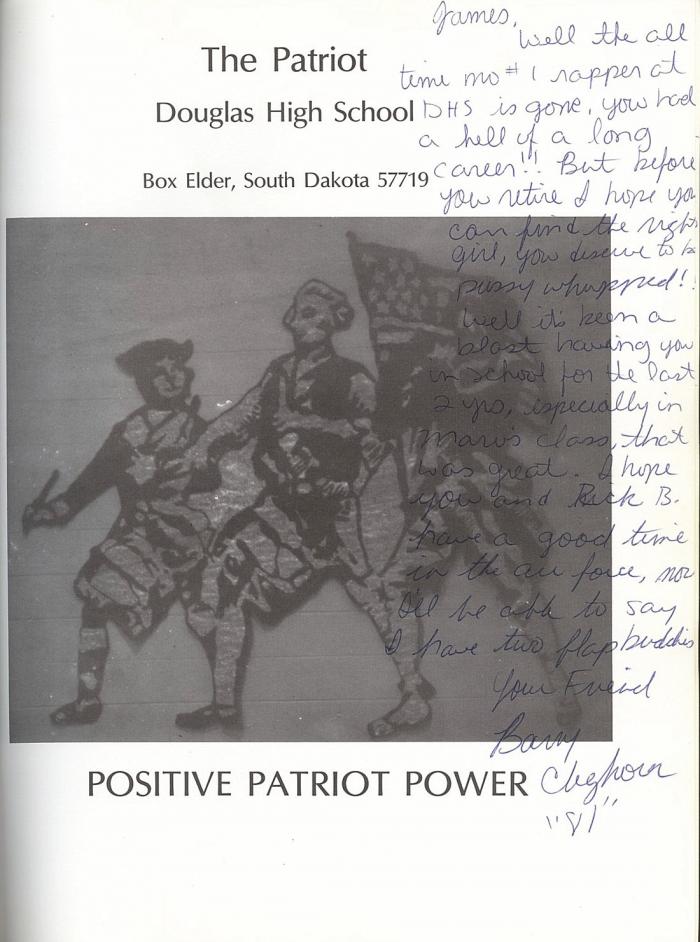 The Patriot
Douglas High School
Box Elder, South Dakota 57719
James,
Well the all
time mo #1 rapper at
DHS is gone, you had
a hell of a long
career!! But before
you retire I hope yo
can find the righ
girl, you deserve to b
pussy whupped!!
Well it's been a
blast having you
in school for the last
2 yrs, especially in
class, that
was great. I hope
you and Rick B.
have a good time
in the air force, now
I'll be able to say
I have two flap buddies
Your Friend
Barry
Cleghorn
"81"
POSITIVE PATRIOT POWER